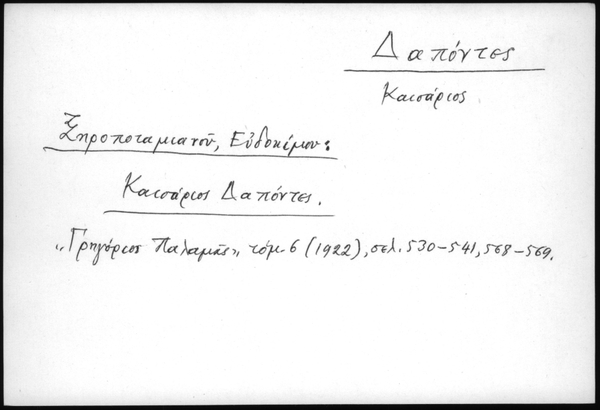 Δαπόντες
Καισάριος
Ξηροποταμιανοῦ, Εὐδοκίμου:
Καισάριος Δαπόντες.
„Γρηγόριος Παλαμᾶς", τόμ. 6 (1922), σελ. 530-541, 568-569.